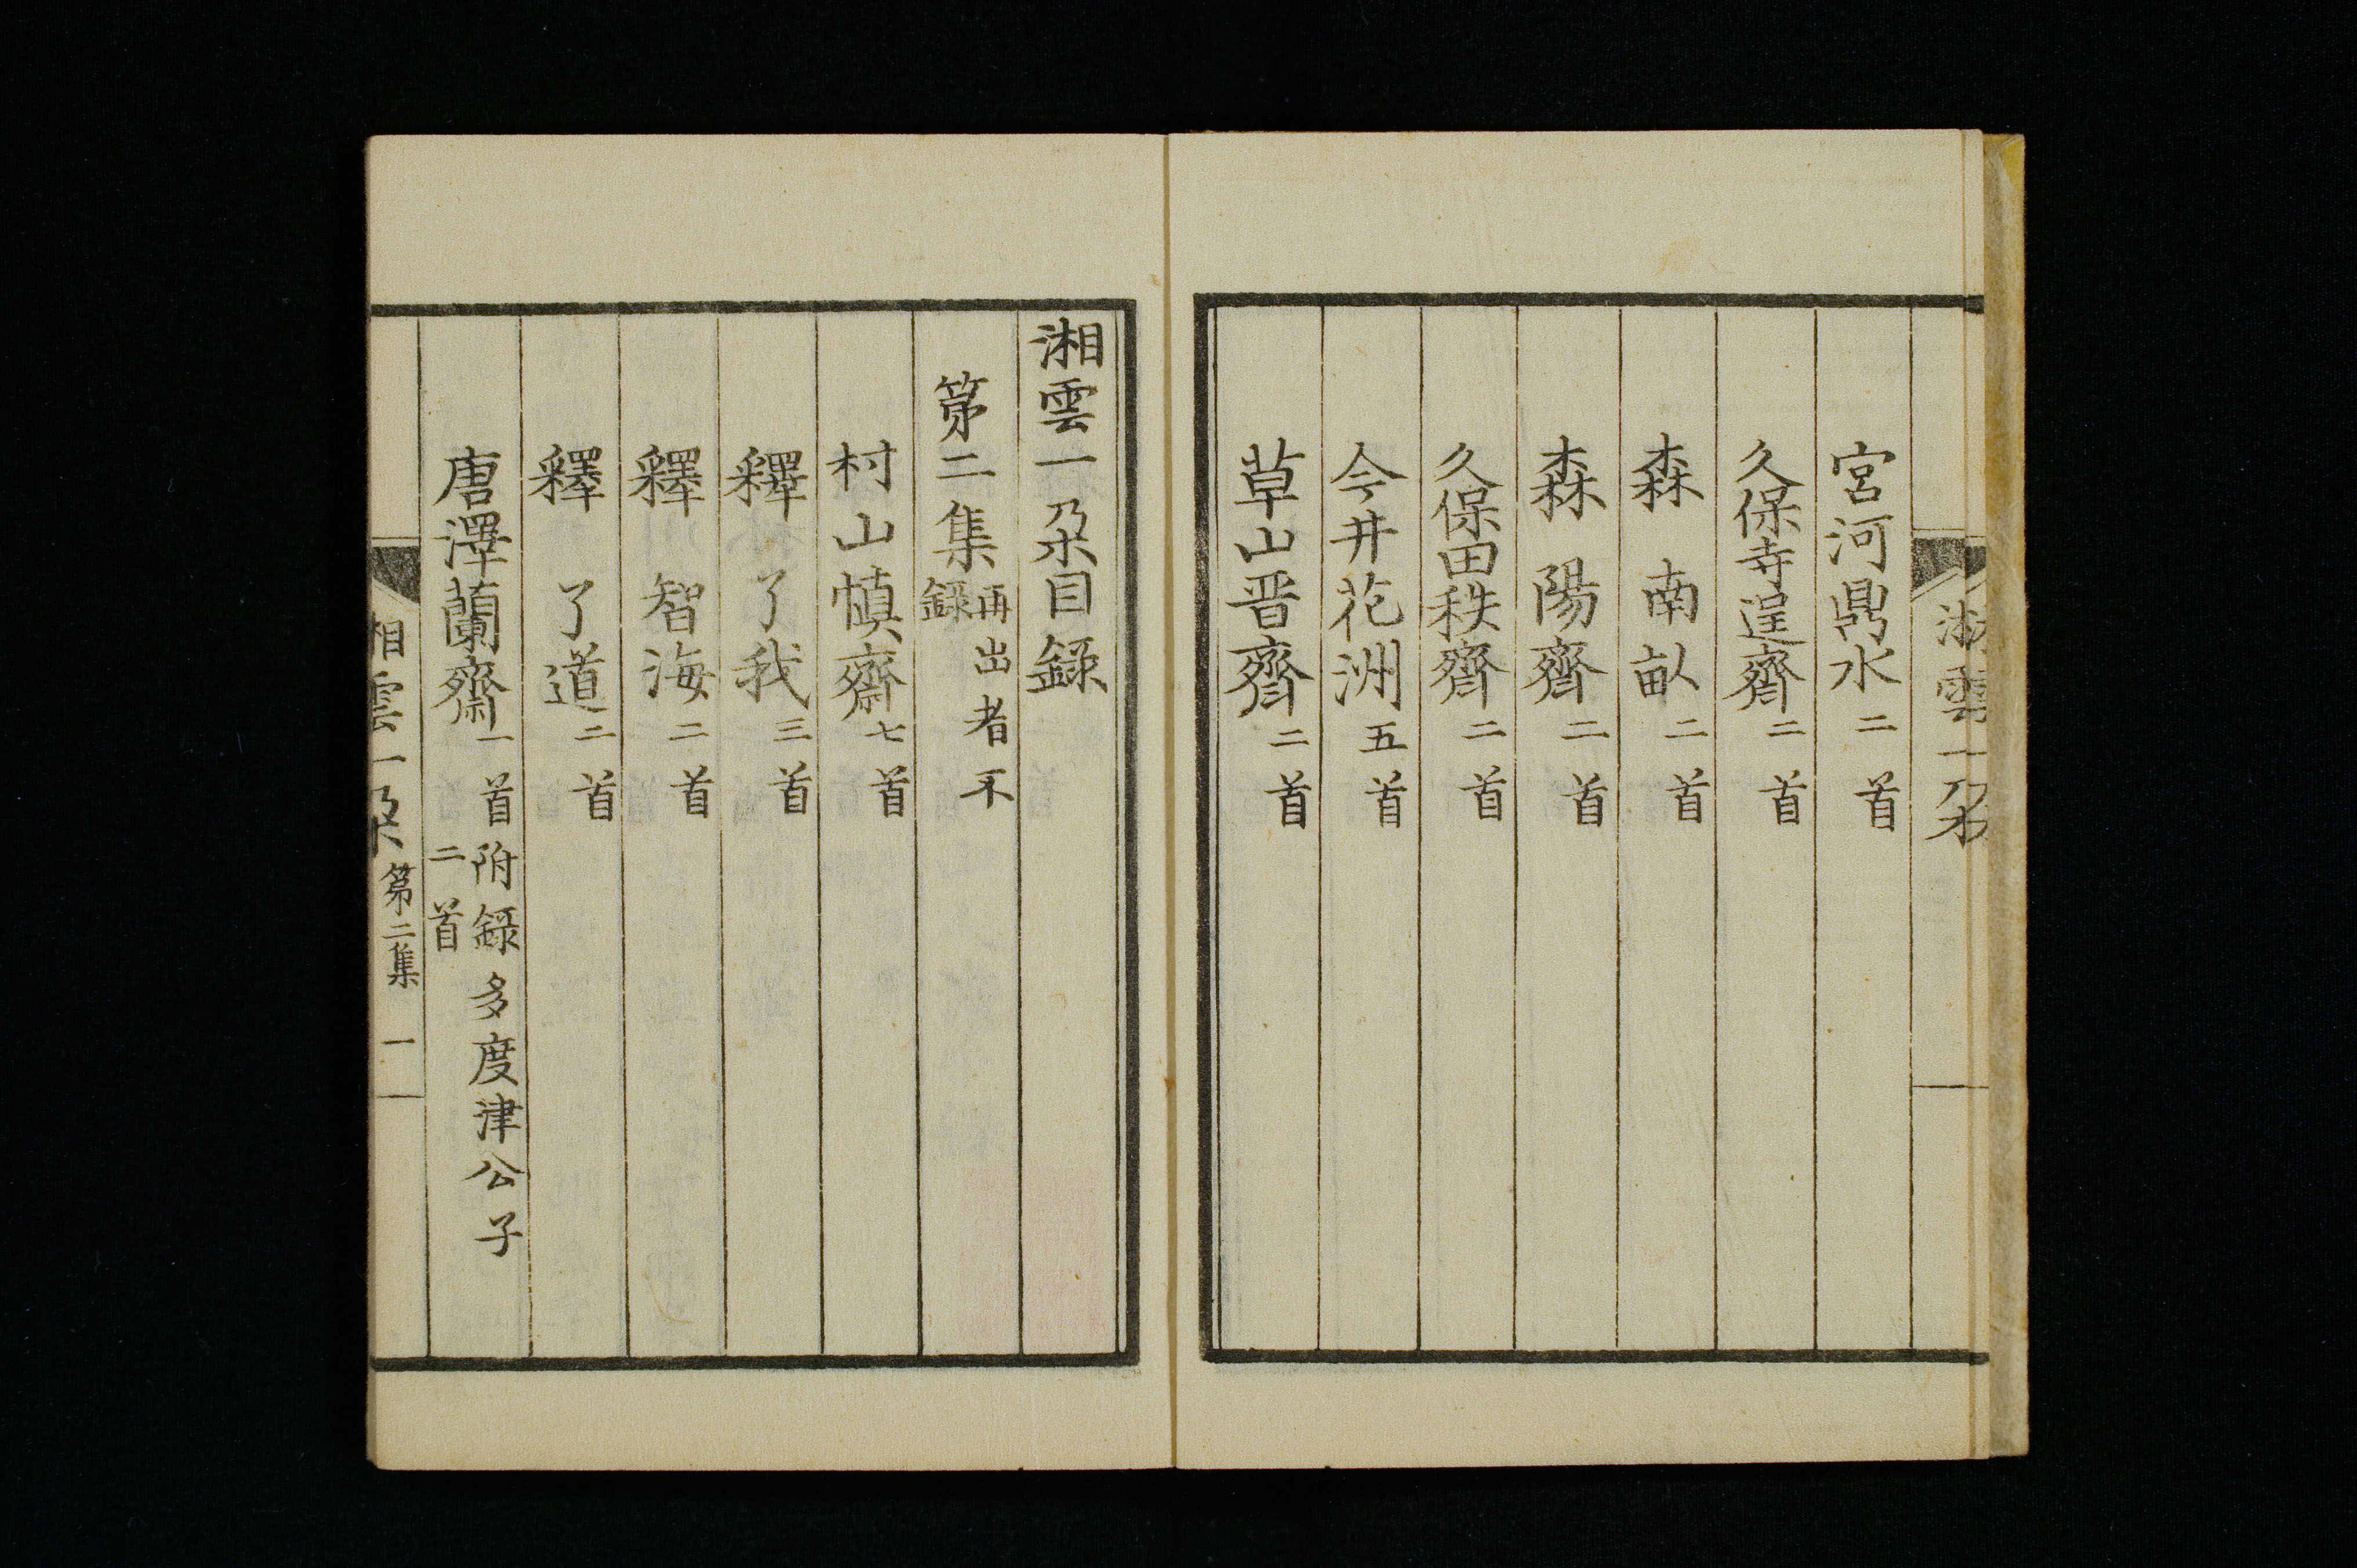 湘雲一朶
宮河鼎水二首
久保寺逞齊二首
森南畝二首
森陽齊二首
久保田秩齊二首
今井花洲五首
草山晋齊二首
湘雲一朶目録
第二集再出者不録
村山慎齋七首
釋了我三首
釋智海二首
釋了道二首
唐澤蘭齋一首附録多度津公子二首
湘雲一朶第二集一